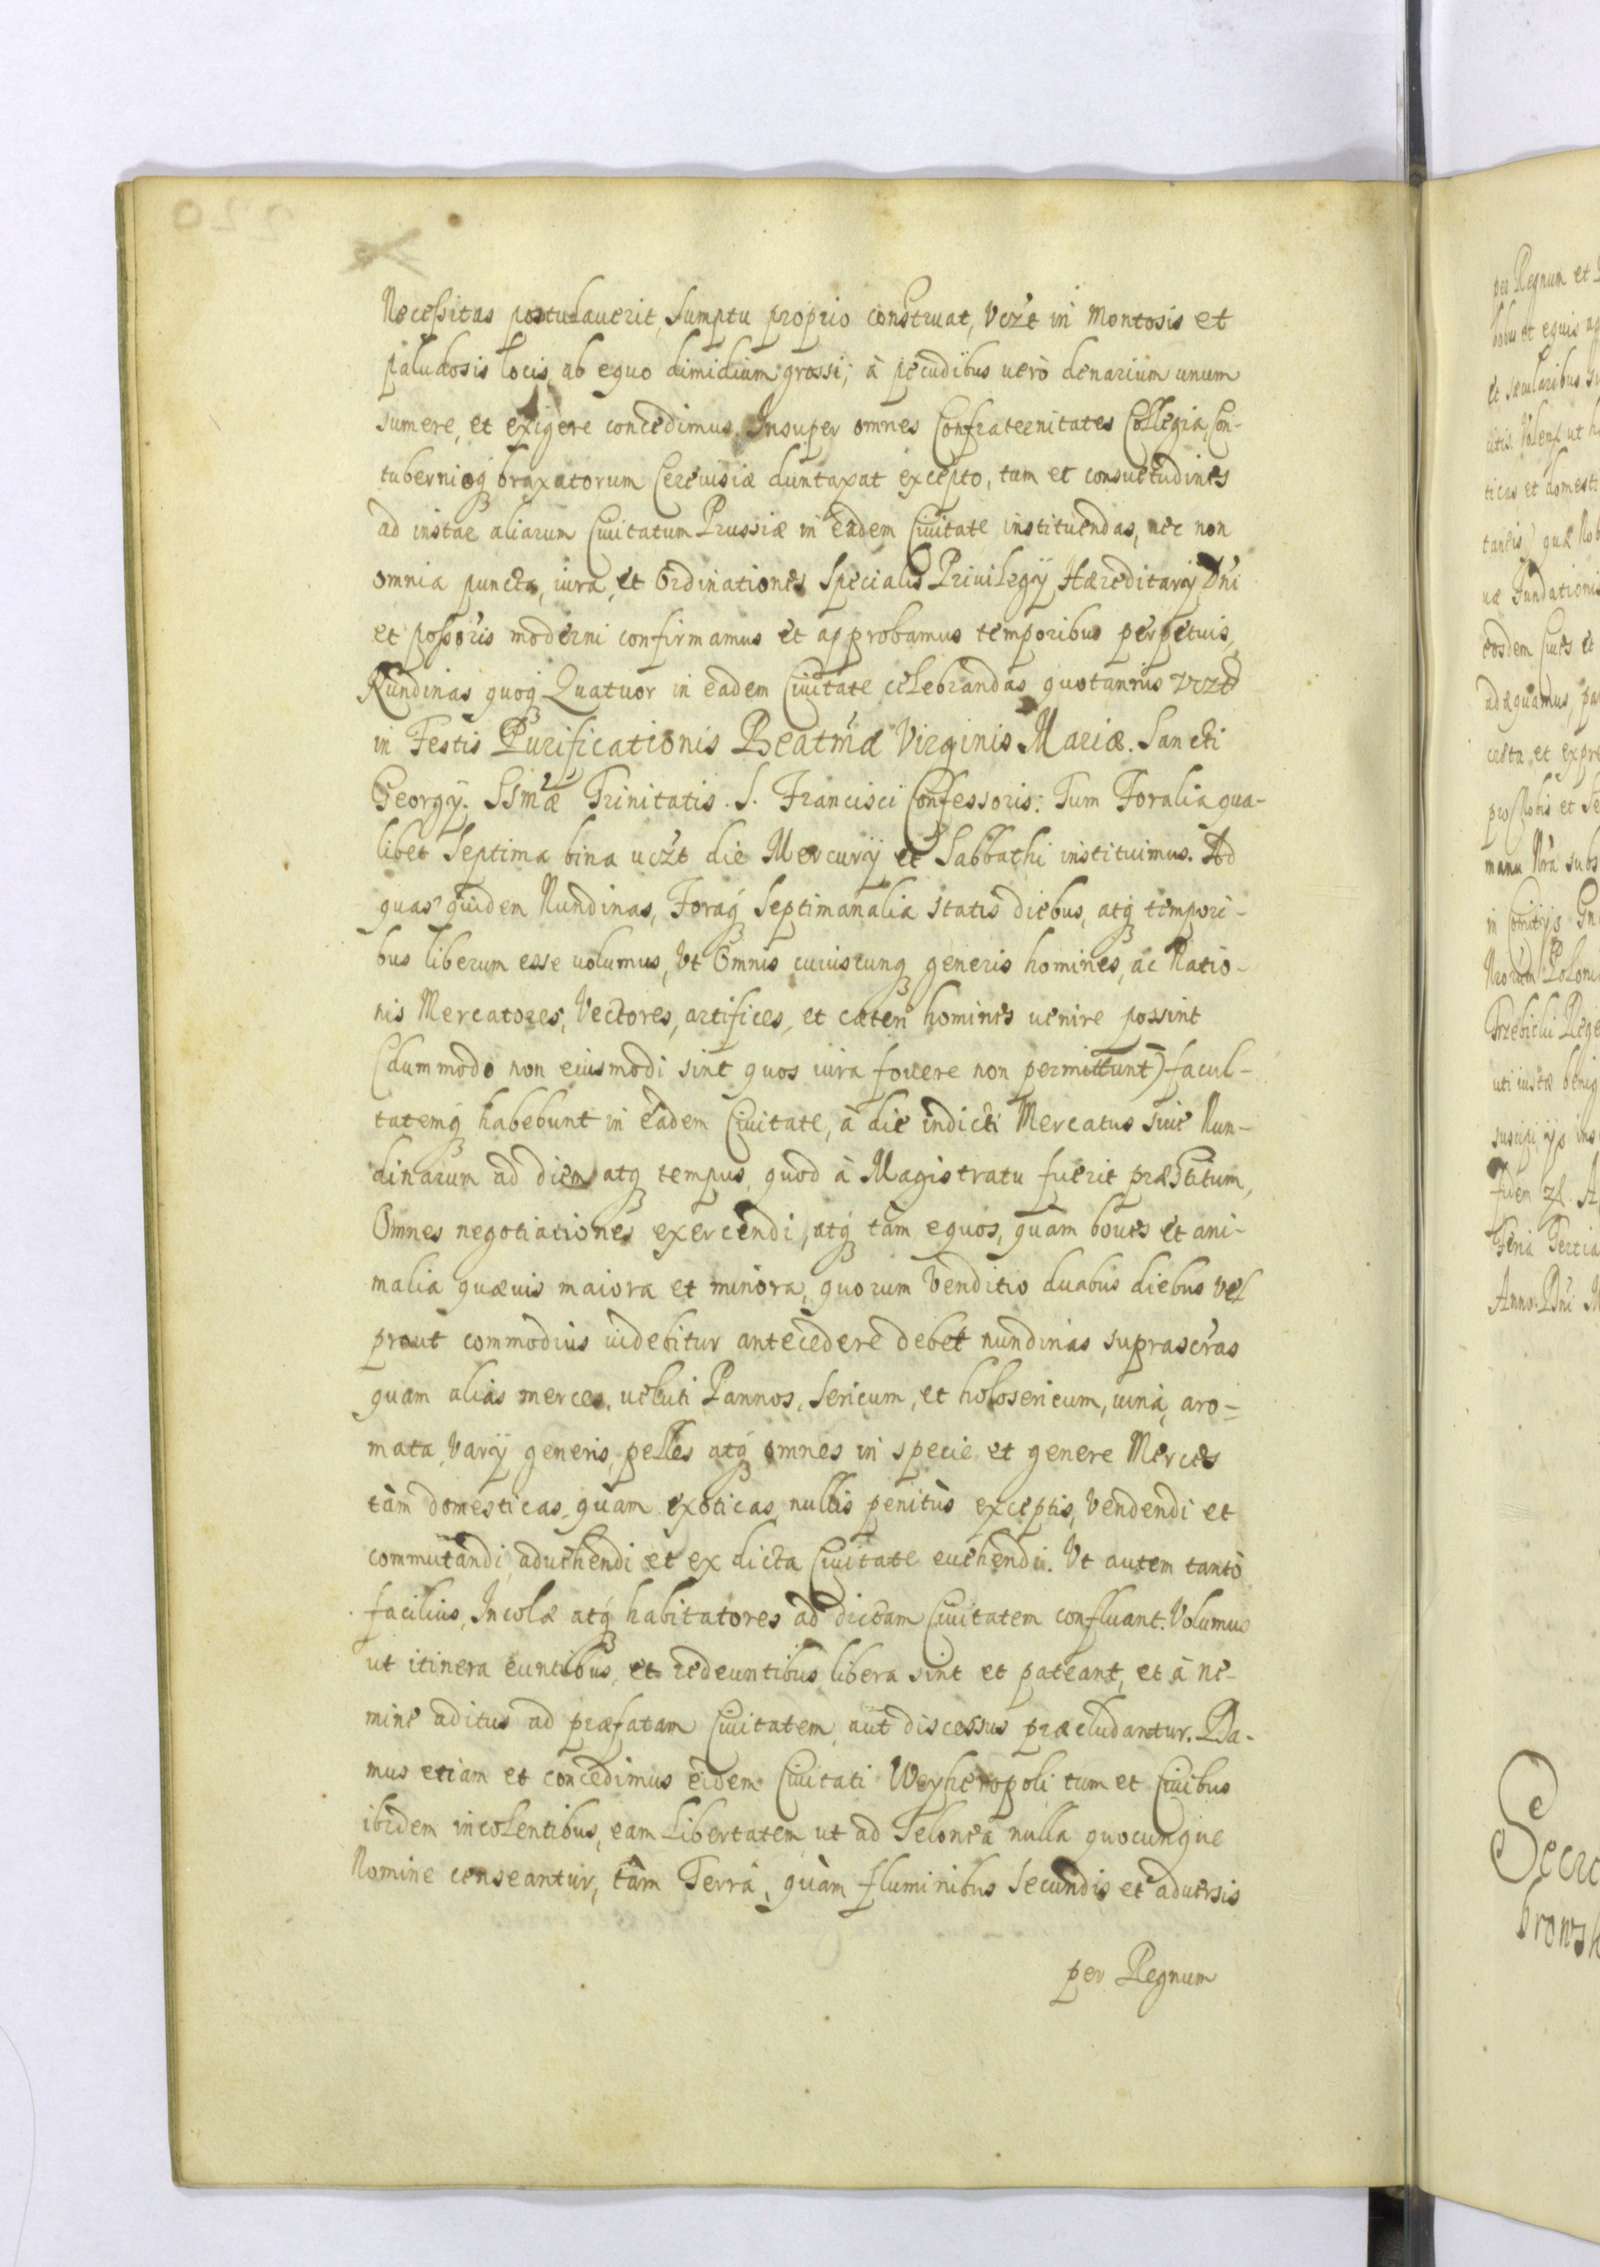 Necessitas postulauerit, sumptu proprio construat, vczt in montosis et
paludosis locis, ab equo dimidium grossi; à pecudibus uerò denarium unum
sumere, et exigere concedimus. Insuper omnes Confraternitates Collegia, Con-
tuberniq; braxatorum Cereuisiæ duntaxat excepto, tum et consuetudines
ad instar aliarum Ciuitatum Prussiæ in eadem Ciuitate instituendas, nec non
omnia puncta, iura, et Ordinationes Specialis Priuilegÿ Hæreditarÿ Dni
et possoris moderni confirmamus et approbamus temporibus perpetuis,
Nundinas quoq; Quatuor in eadem Ciuitate celebrandas quotannis vczt
in Festis Purificationis Beatmæ Virginis Mariæ. Sancti
Georgÿ. SSmæ Trinitatis. S. Francisci Confessoris: Tum Foralia qua-
libet Septima bina uczt die Mercurÿ et Sabbathi instituimus. Ad
quas quidem Nundinas, Foraq; Septimanalia statis diebus, atq; tempori-
bus liberum esse uolumus, Vt Omnis cuiuscunq; generis homines, ac Natio-
nis Mercatores, Vectores, artifices, et cæteri homines uenire possint
(dummodo non eiusmodi sint quos iura fouere non permittunt) facul-
tatemq; habebunt in eadem Ciuitate, à die indicti Mercatus siue Nun-
dinarum ad diem atq; tempus, quod à Magistratu fuerit præstitum,
Omnes negotiationes exercendi, atq; tàm equos, quàm boues et ani-
malia quæuis maiora et minora, quorum Venditio duabus diebus vel
prout commodius uidebitur antecedere debet nundinas suprascras
quam alias merces, ueluti Pannos, Sericum, et holosericum, uina, aro-
mata, Varÿ generis, pelles atq; omnes in specie et genere Merces
tàm domesticas, quam exoticas, nullis penitùs exceptis, Vendendi et
commutandi, aduehendi et ex dicta Ciuitate euehendi. Vt autem tantò
facilius, Incolæ atq; habitatores ad dictam Ciuitatem confluant. Volumus
ut itinera euntibus, et redeuntibus libera sint et pateant, et à ne-
mine aditus ad præfatam Ciuitatem, aut discessus præcludantur. Da-
mus etiam et concedimus eidem Ciuitati Weyheropoli tum et Ciuibus
ibidem incolentibus, eam Libertatem, ut ad Telonea nulla quocunque
Nomine censeantur, tàm Terrâ, quàm fluminibus Secundis et aduersis
per Regnum